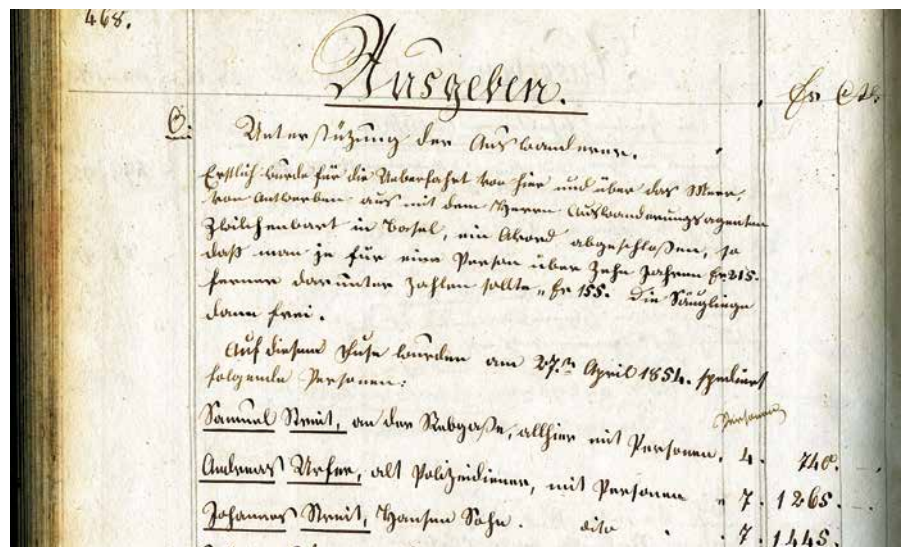 468.
Ausgeben.
Fr Cts.
C. Unterstützung der Auswanderer.
Erstlich wurde für die Ueberfahrt von hier und über das Meer,
von Antwerben aus mit dem Herrn Auswanderungsagenten
Zwilchenbart in Basel, ein Akord abgeschloßen, so
daß man je für eine Person über Zehn Jahren Fr 215.
ferner darunter zahlen sollte „ Fr 155. Die Säuglinge
dann frei.
Auf diesem Fuße wurden am 27.ten April 1854. spediert
folgende Personen:
Personen
Samuel Streit, an der Rebgaße, allhier mit Personen, 4. 740.
Andreas Urfer, alt Polizeidiener, mit Personen „ 7. 1265.
Johannes Streit, Hansen Sohn. dito „ 7. 1445.